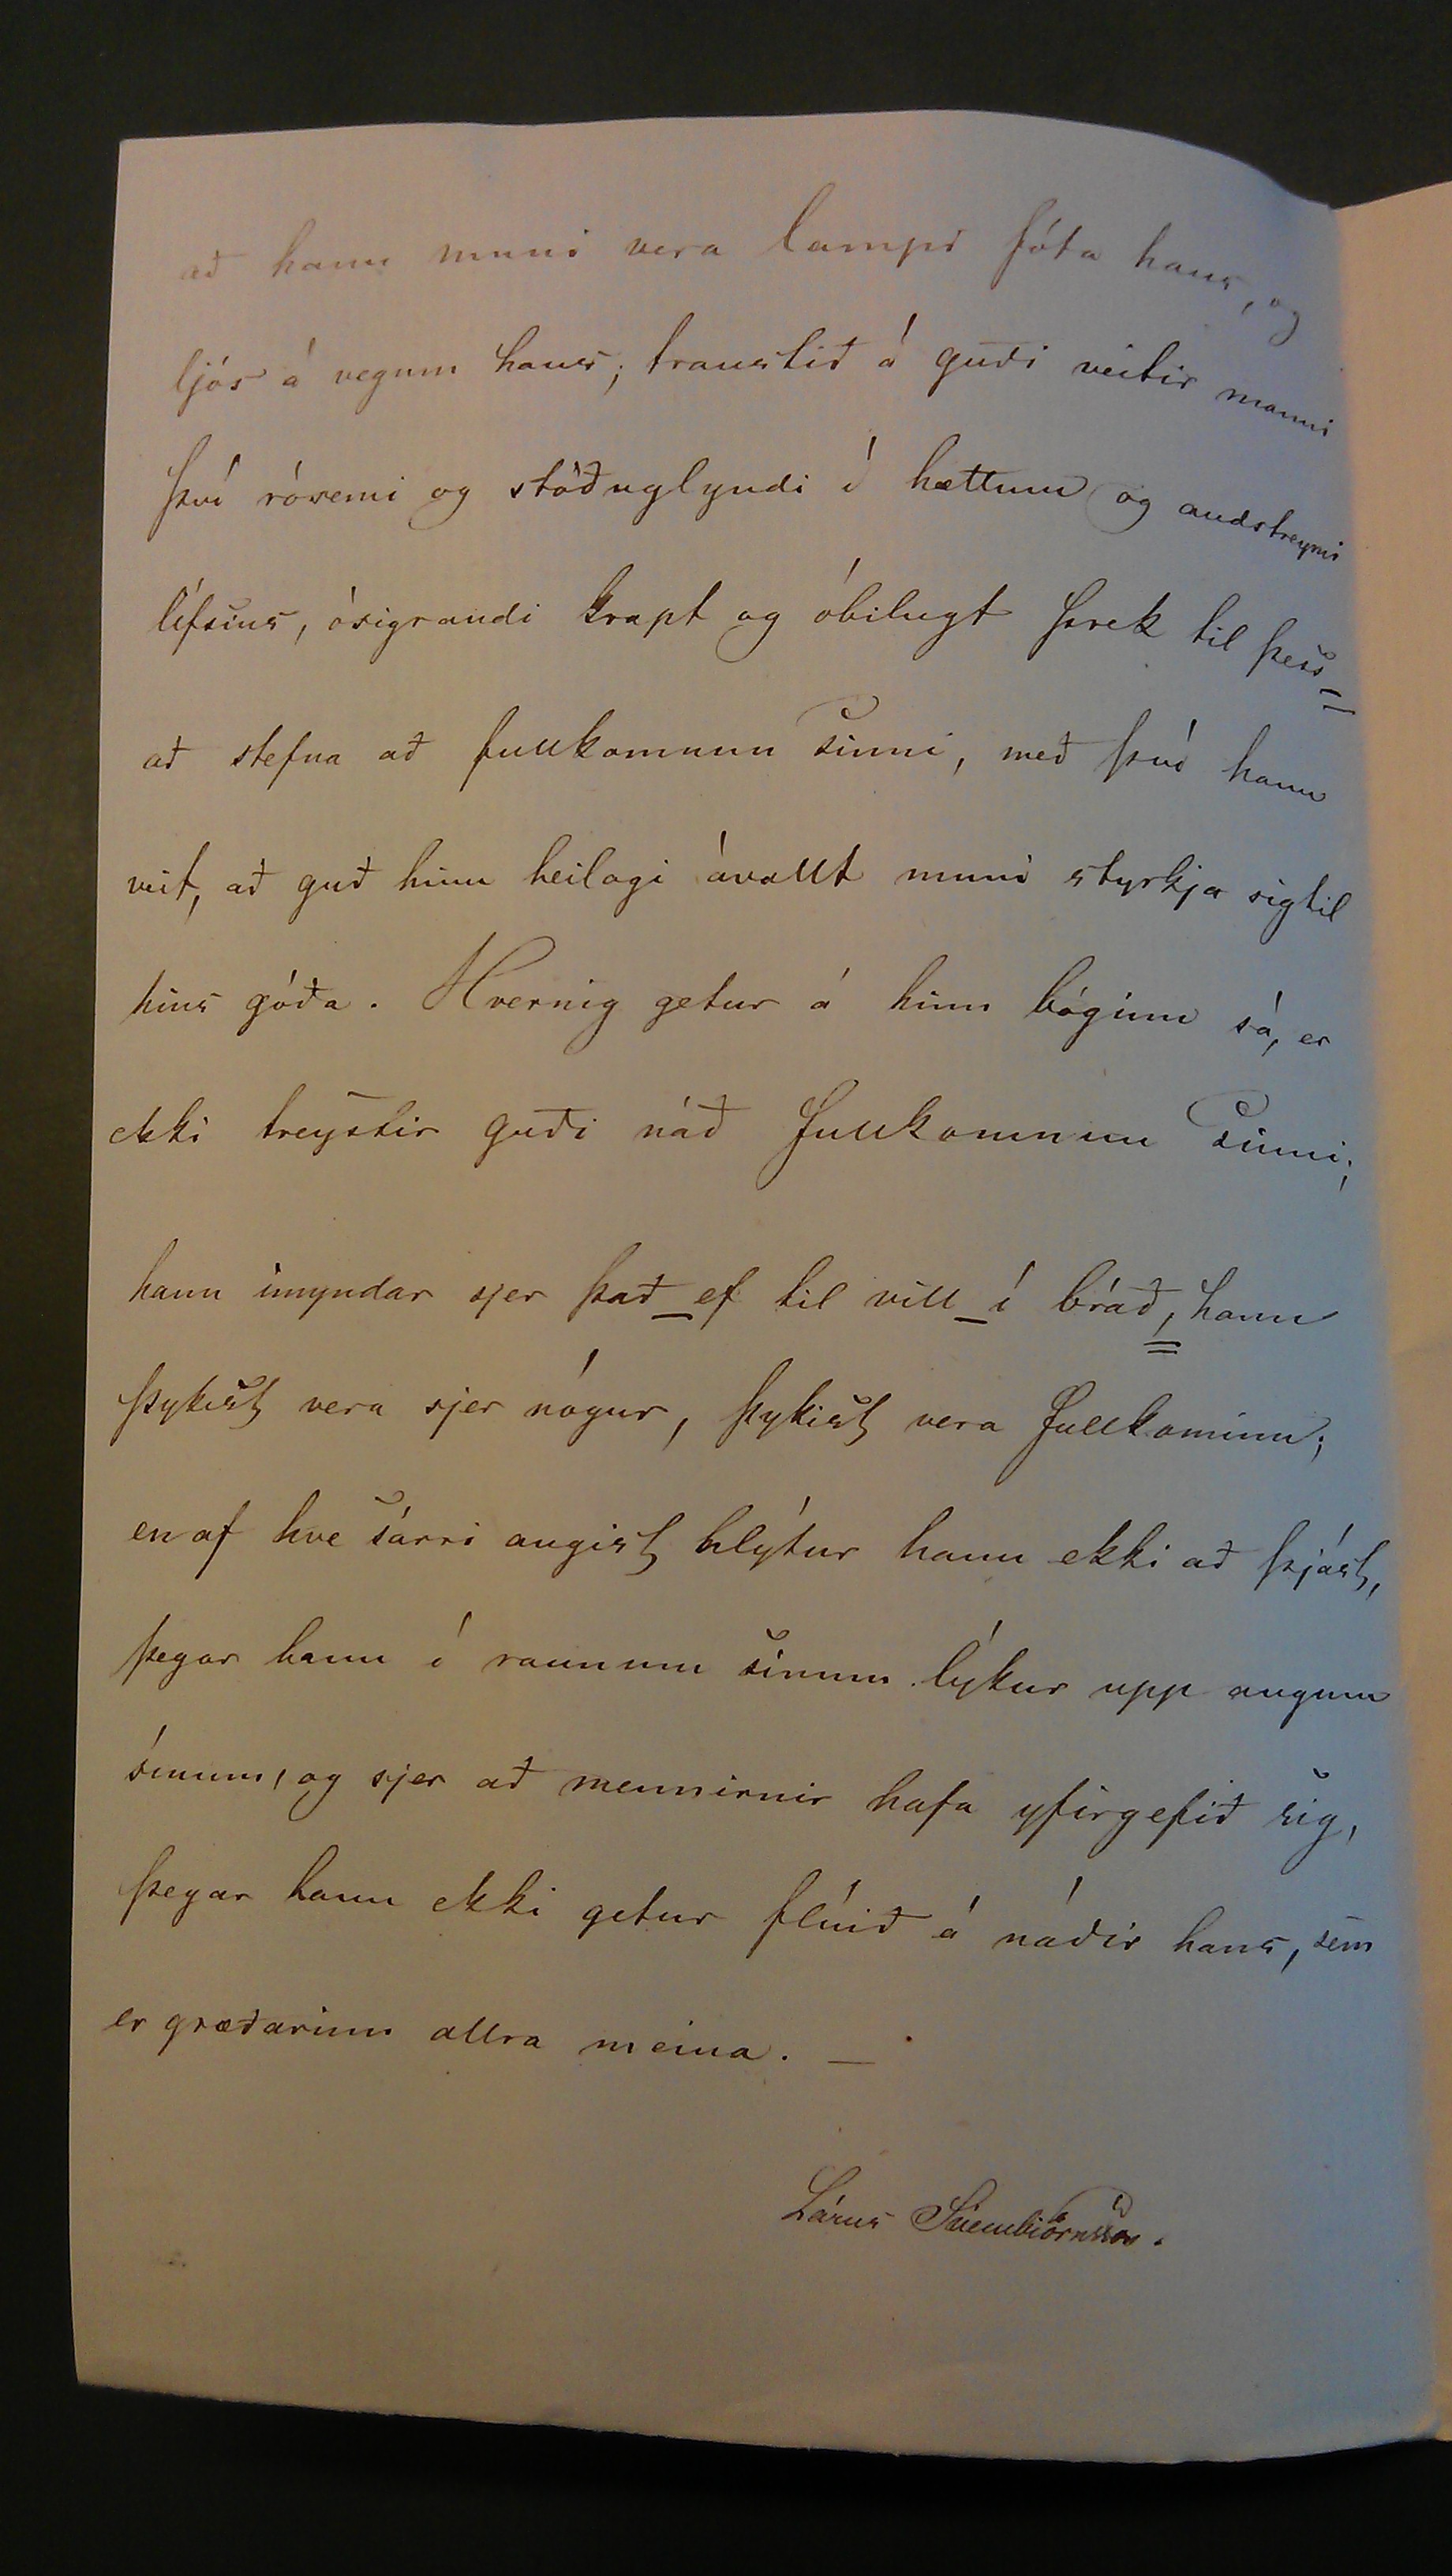 að hann muni vera lampi fóta hans, og
ljós á vegum hans; traustið á guði veitir manni
því rósemi og stöðuglyndi í hættum og andstreymi
lífsins, ósigrandi krapt og óbilugt þrek til þess
að stefna að fullkomnun sinni, með því hann
veit, að guð hinn heilagi ávallt muni styrkja sig til
hins góða. Hvernig getur á hinn bóginn sá, er
ekki treystir guði náð fullkomnun sinni;
hann ímyndar sjer það_ef til vill_í bráð, hann
þykist vera sjer nógur, þykist vera fullkominn;
en af hve sárri angist hlýtur hann ekki að þjást,
þegar hann í raunum sínum lýkur upp augum
sínum, og sjer að mennirnir hafa yfirgefið sig,
þegar hann ekki getur flúið á náðir hans, sem
er græðarinn allra meina. _
Lárus Sveinbiörnsson.